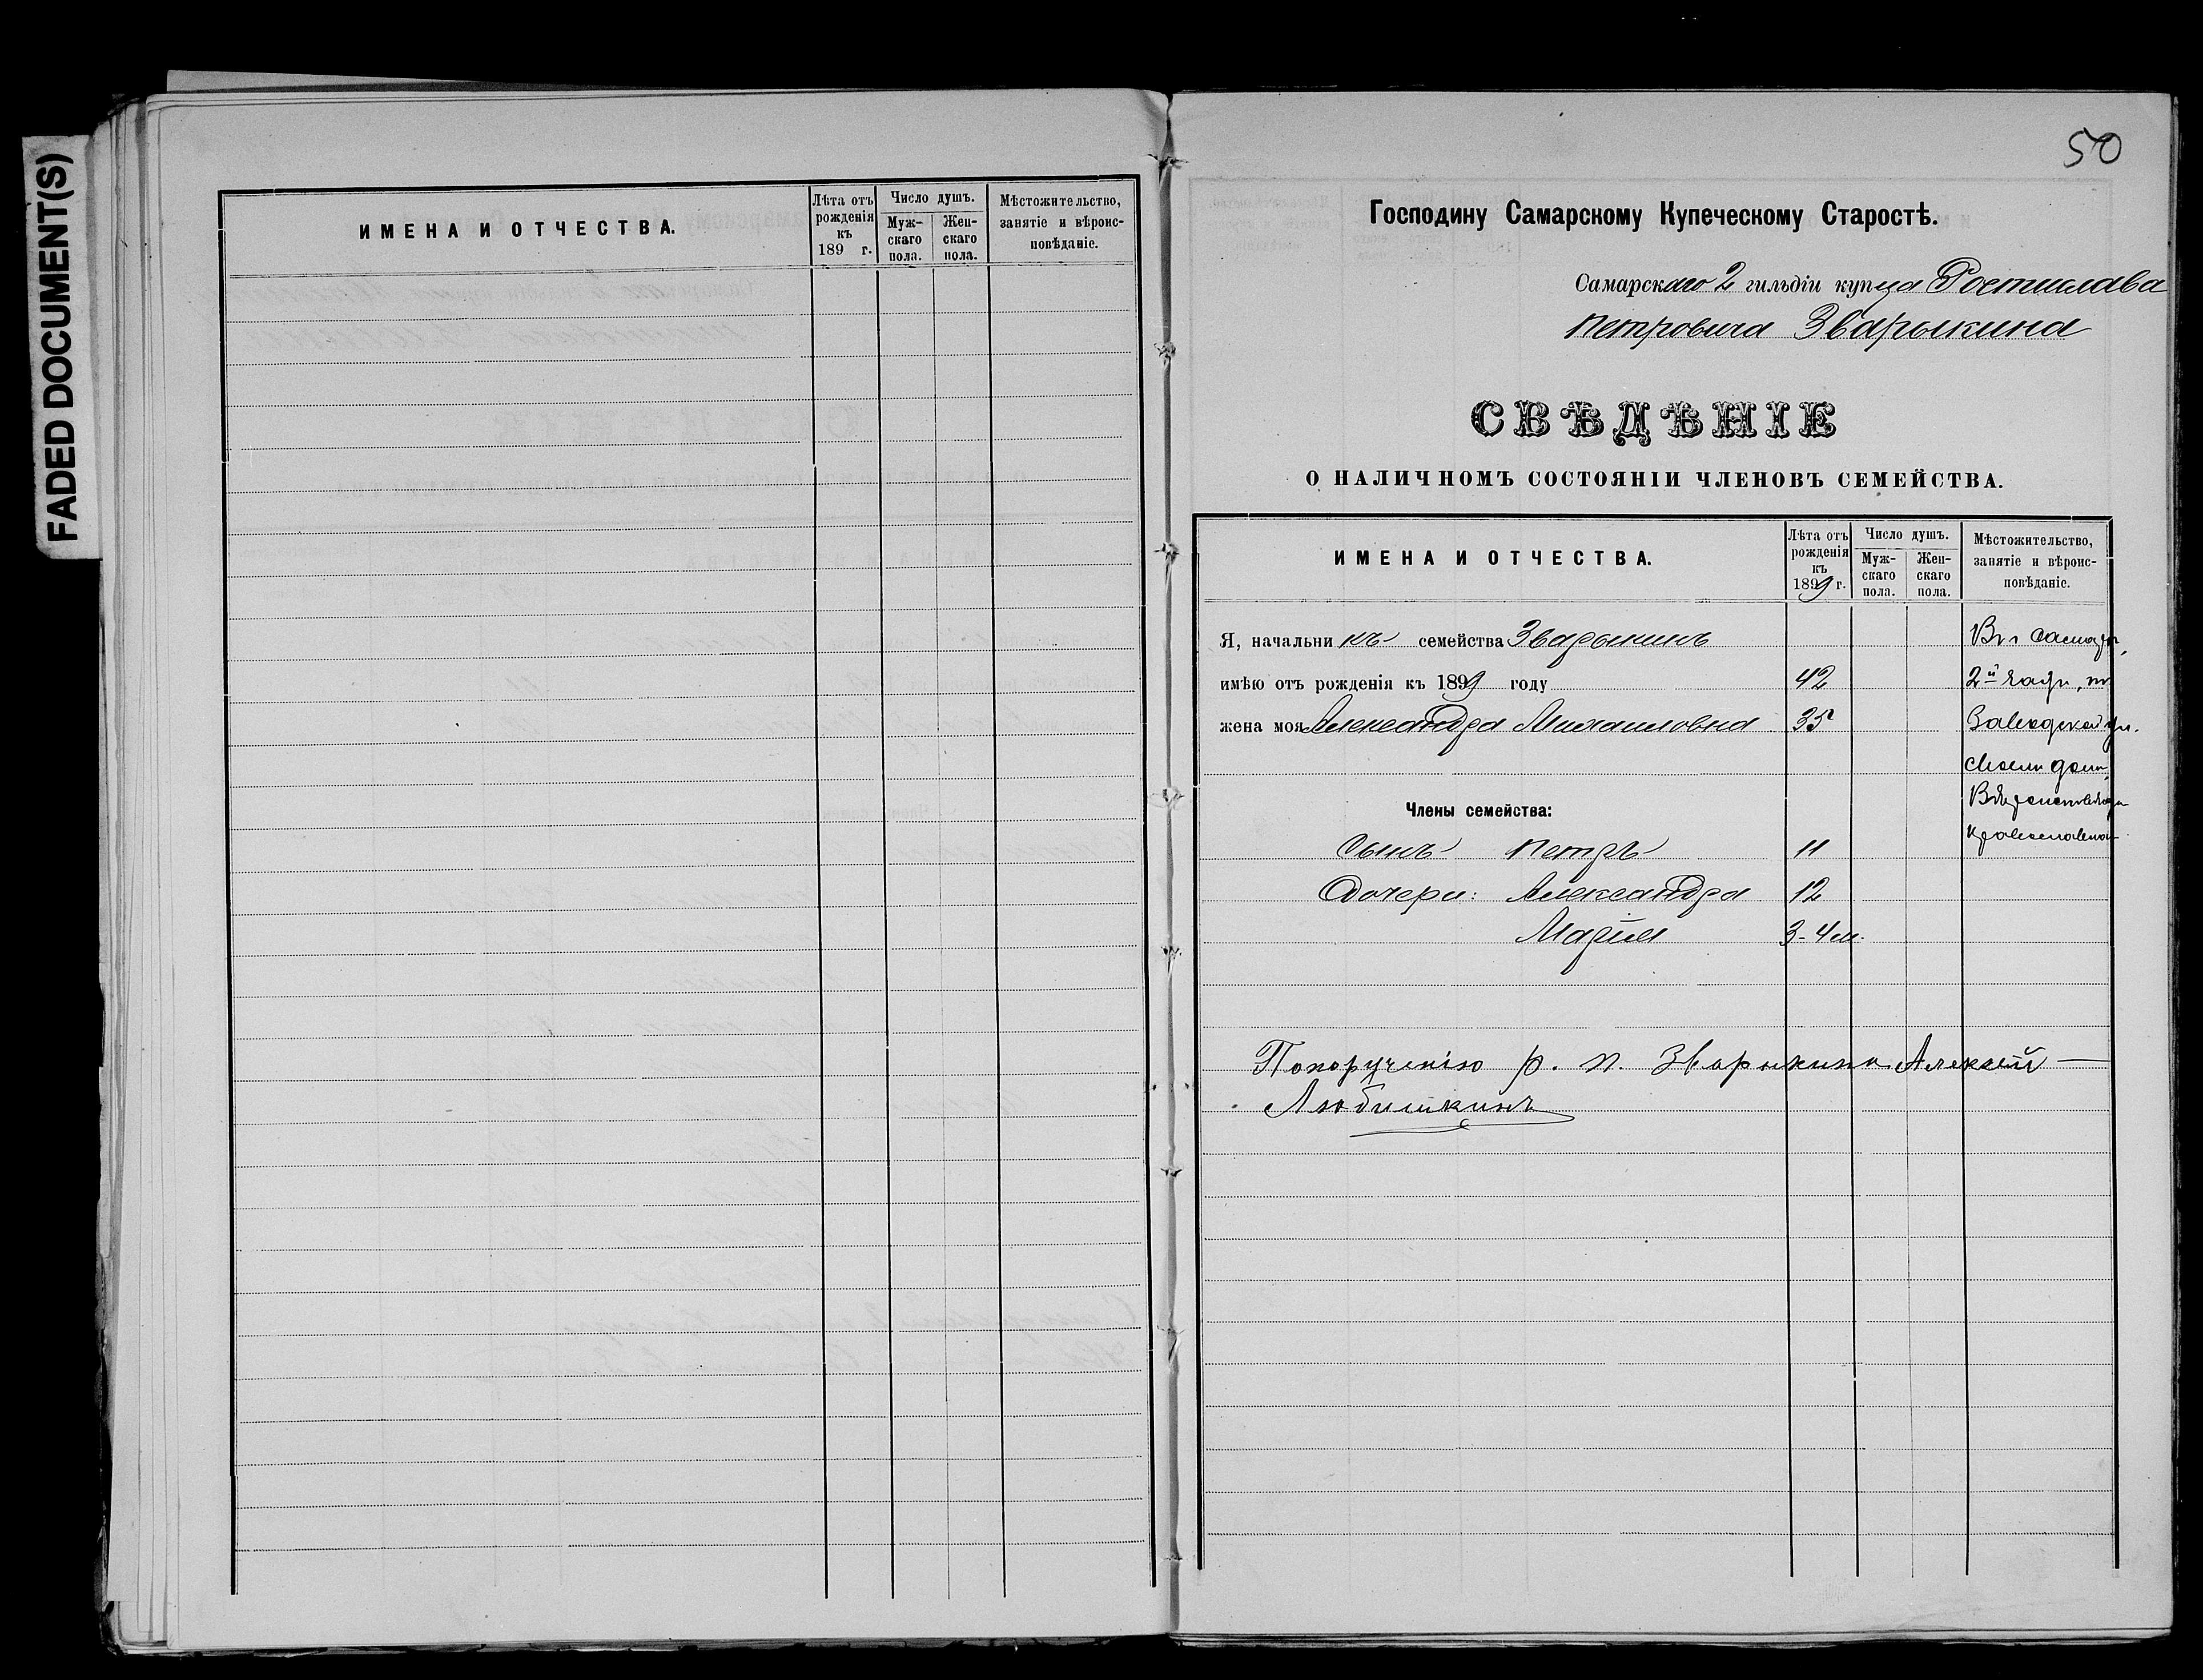 FADED DOCUMENT(S)
ИМЕНА И ОТЧЕСТВА.
Лѣта отъ рожденія къ 189 г.
Число душъ.
Мужскаго пола.
Женскаго пола.
Мѣстожительство, занятіе и вѣроисповѣданіе.
50
Господину Самарскому Купеческому Старостѣ.
Самарскаго 2 гильдіи купца Ростислава
Петровича Зварыкина
СВѢДѢНІЕ
О НАЛИЧНОМЪ СОСТОЯНІИ ЧЛЕНОВЪ СЕМЕЙСТВА.
ИМЕНА И ОТЧЕСТВА.
Лѣта отъ рожденія къ 1899 г.
Число душъ.
Мужскаго пола.
Женскаго пола.
Мѣстожительство, занятіе и вѣроисповѣданіе.
Я, начальникъ семейства Зварыкинъ Въ г Самарѣ,
имѣю отъ рожденія къ 1899 году 42 2й части, по
жена моя Александра Михаиловна 35 Заводской ул.
своемъ домѣ,
Члены семейства: Вѣроисповѣд.
Сынъ Петръ 11 православна
Дочери: Александра 12
Марія 3-4 м.
По порученію Р. П. Зварыкина Алексѣй —
Любишкинъ